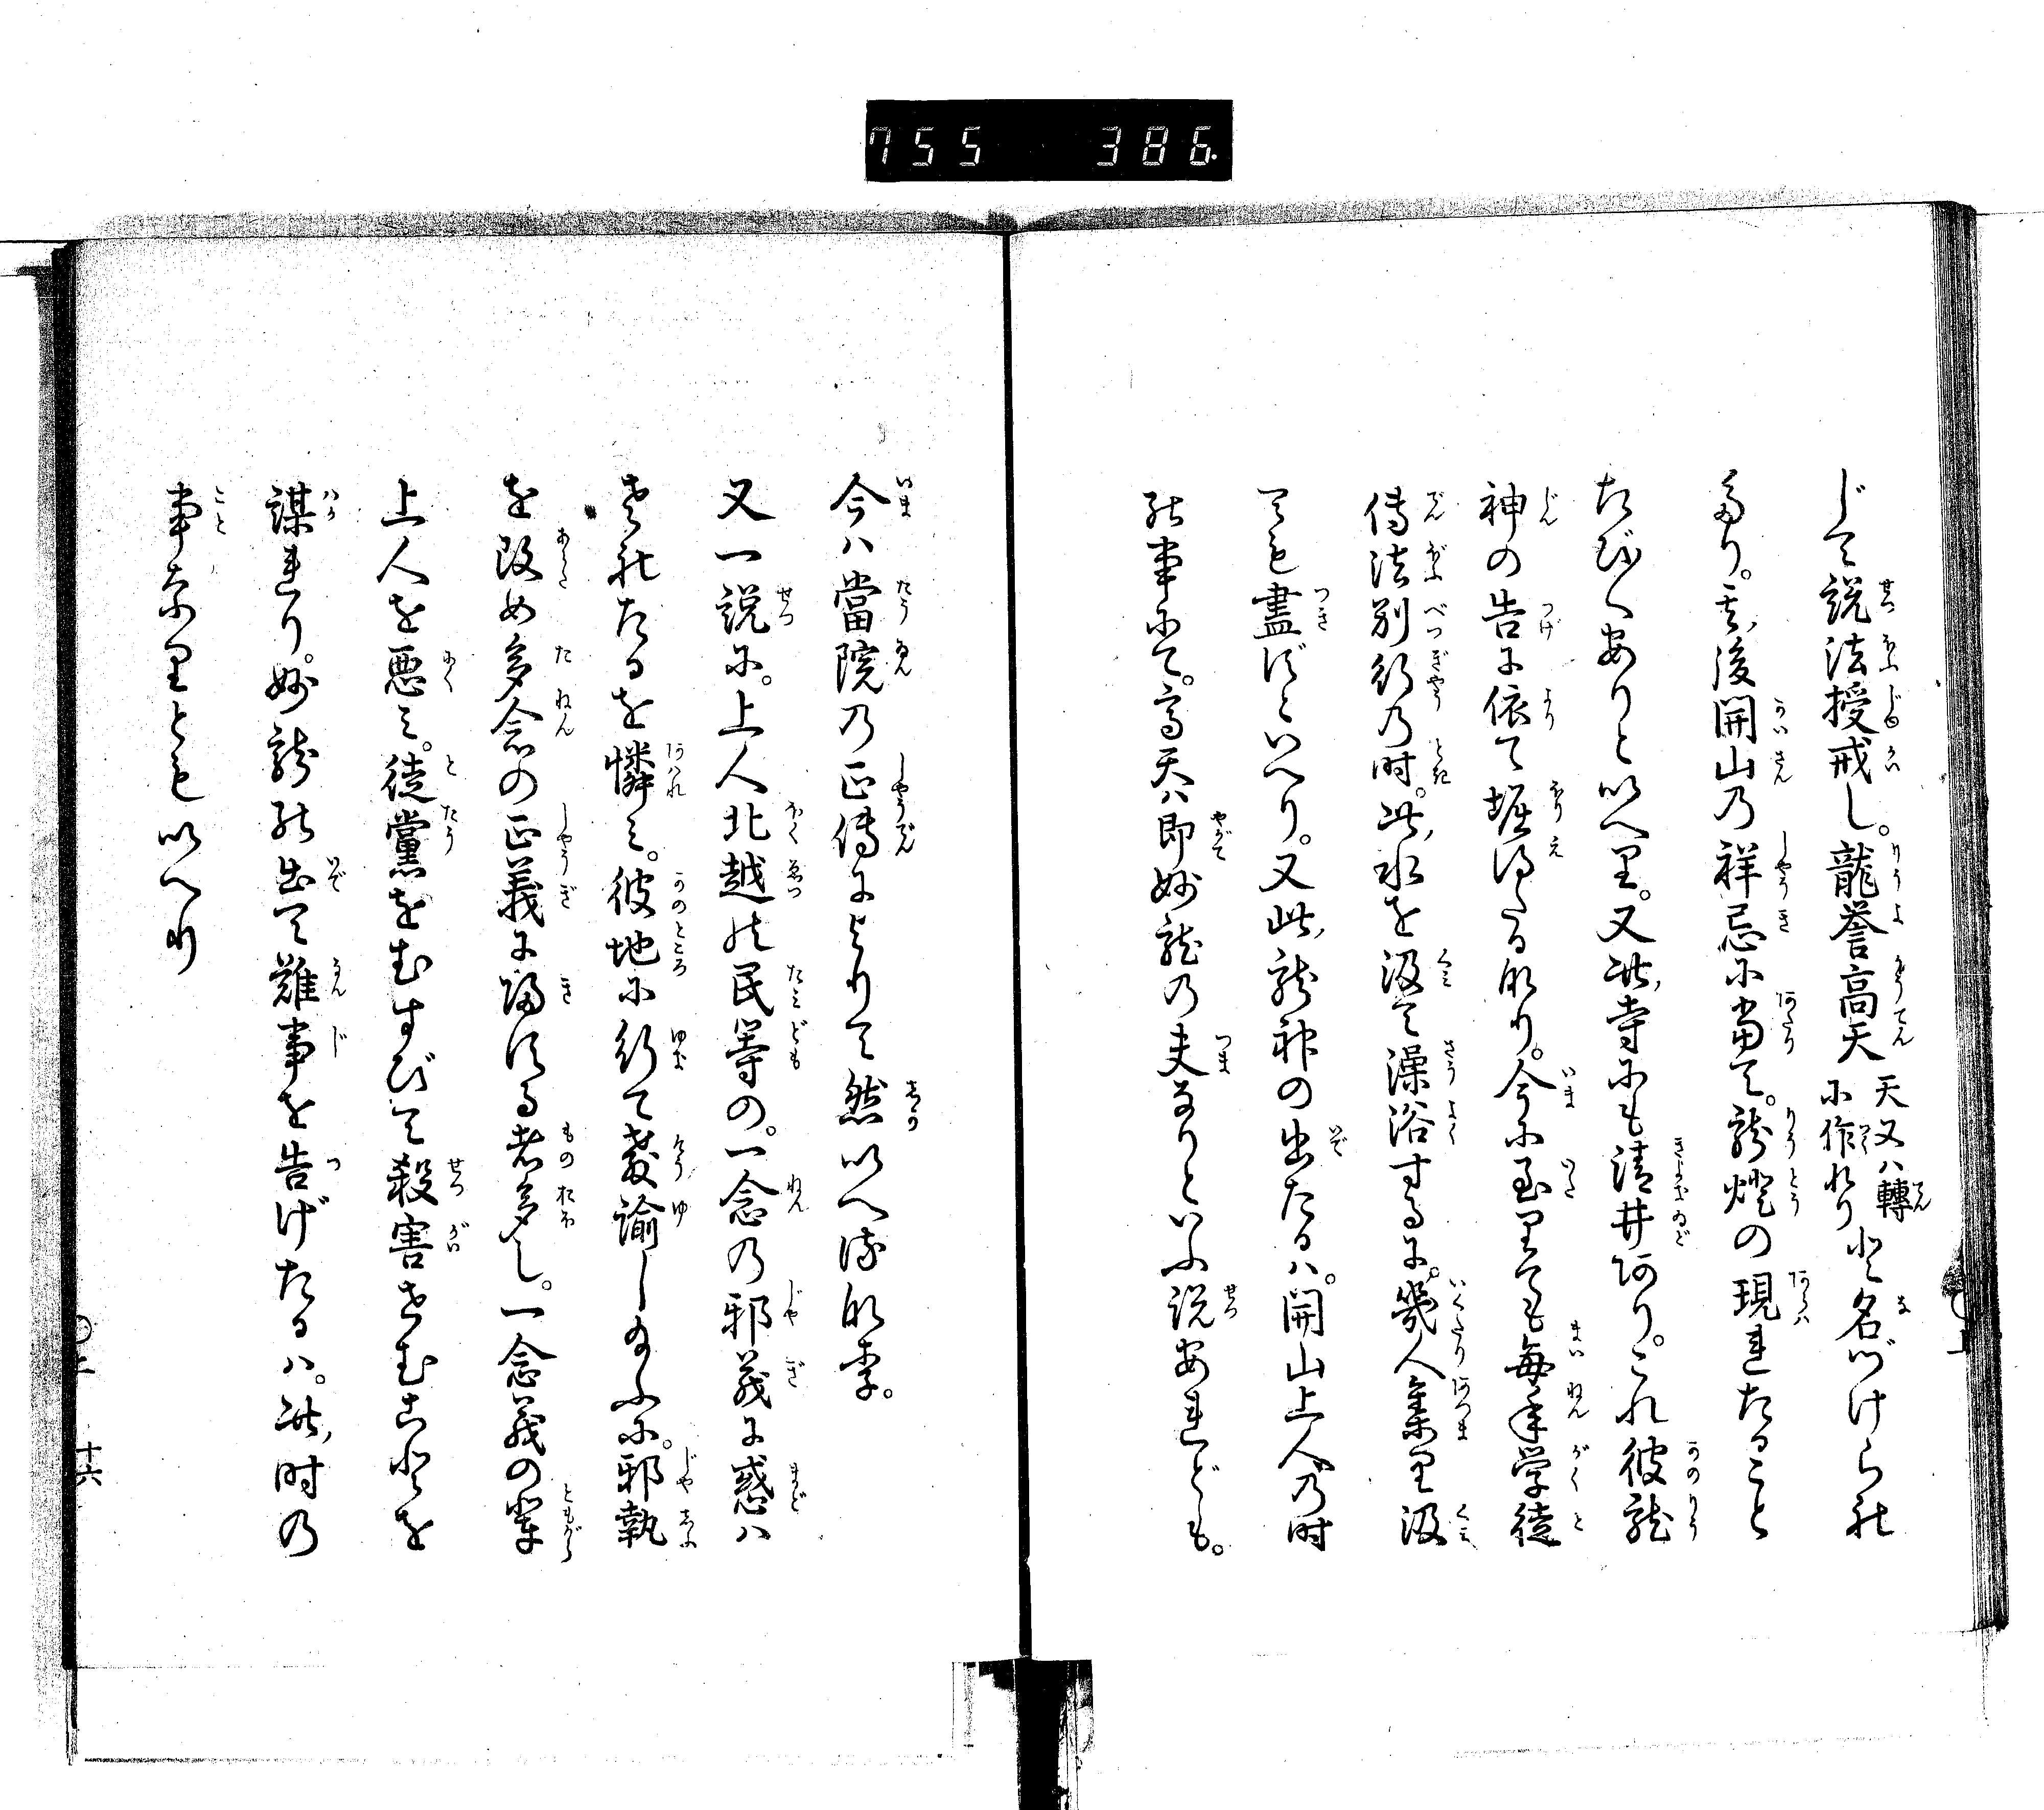 755 386
じて説法授戒し。龍誉高天天又ハ轉に作れりと名づけられ
たり。其後開山の祥忌に当て。龍燈の現れたること
たび〱ありといへり。又此寺にも清井あり。これ彼龍
神の告に依て堀得たるなり。今に至りても毎年学徒
傳法別行の時。此水を汲て澡浴するに。幾人集り汲
ても盡ずといへり。又此龍神の出たるハ。開山上人の時
の事にて。高天ハ即妙龍の夫なりといふ説あれども。
今ハ當院の正傳によりて然いへるなり。
又一説に。上人北越の民等の。一念の邪義に惑ハ
されたるを憐ミ。彼地に行て教諭し給ふに。邪執
を改め多念の正義に帰する者多し。一念義の輩
上人を悪ミ。徒黨をむすびて殺害せむことを
謀れり。妙龍の出て難事を告げたるハ。此時の
事なりともいへり
上 十六